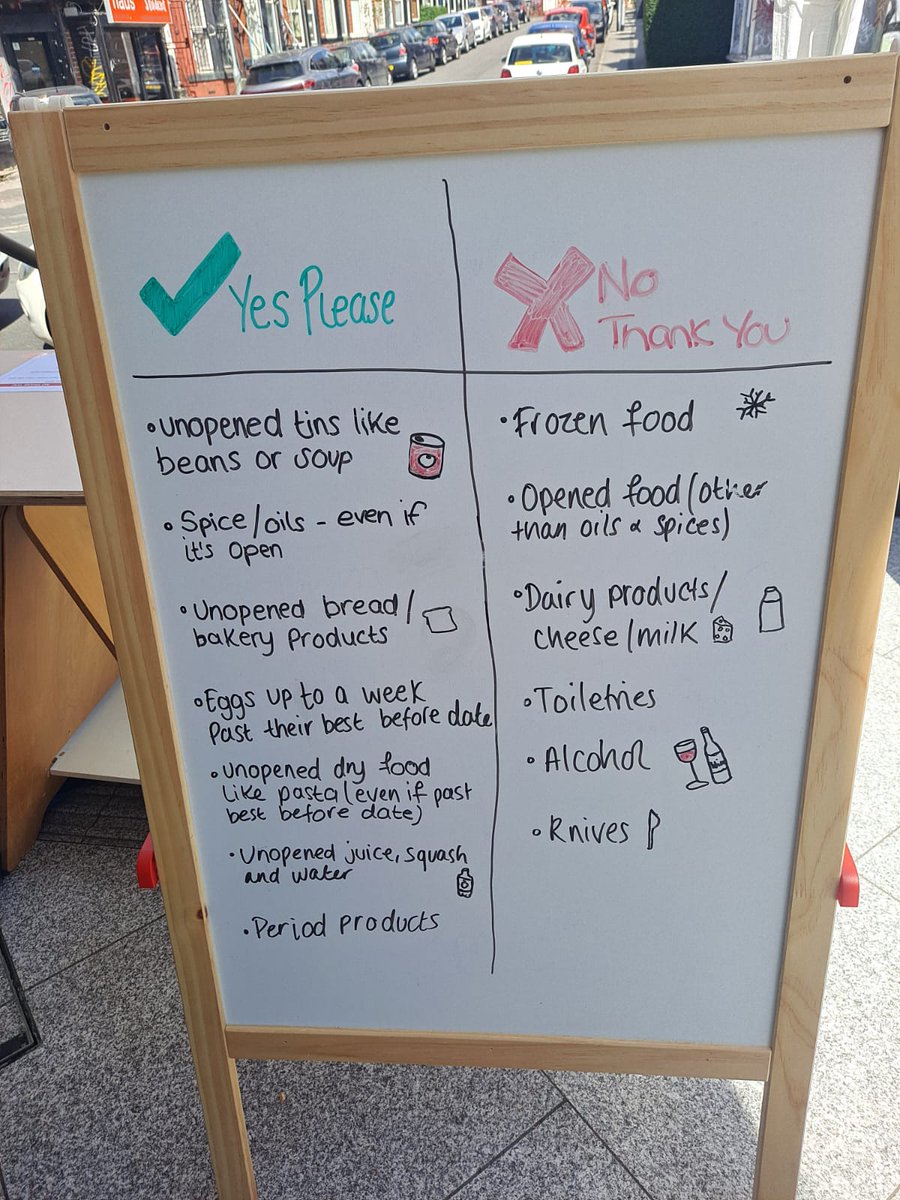 Yes Please
• Unopened tins like
beans or soup
• Spice/oils - even if
it's open
• Unopened bread/
bakery products
• Eggs up to a week
Past their best before date
• Unopened dry food
like pasta (even if past
best before date)
• Unopened juice, squash
and water
• Period products
No
Thank You
• Frozen food
• Opened food (other
than oils & spices)
• Dairy products/
cheese/milk
• Toiletries
• Alcohol
• Knives